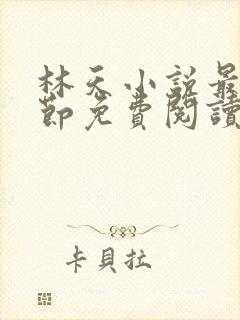 林天小說最
節免費閱讀
卡貝拉